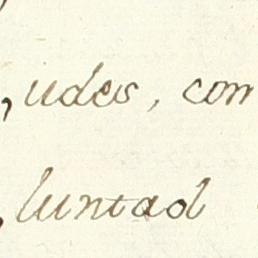 udes, com
luntad